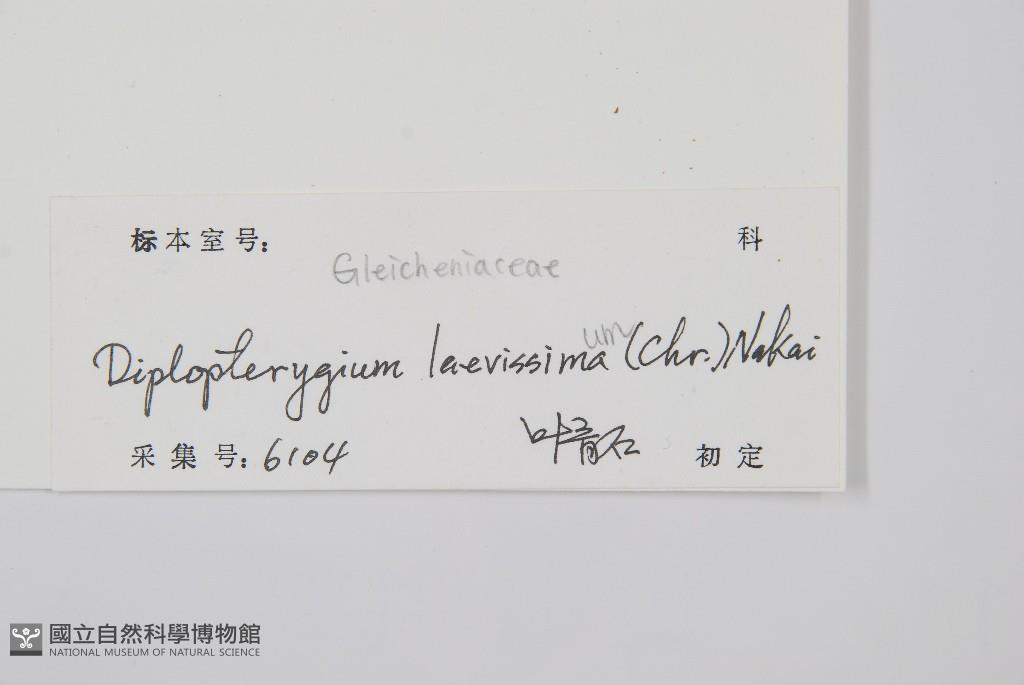 标本室号: 科
Gleicheniaceae
um
Diplopterygium laevissima (Chr.) Nakai
采集号: 6104 叶青石 初定
國立自然科學博物館
NATIONAL MUSEUM OF NATURAL SCIENCE